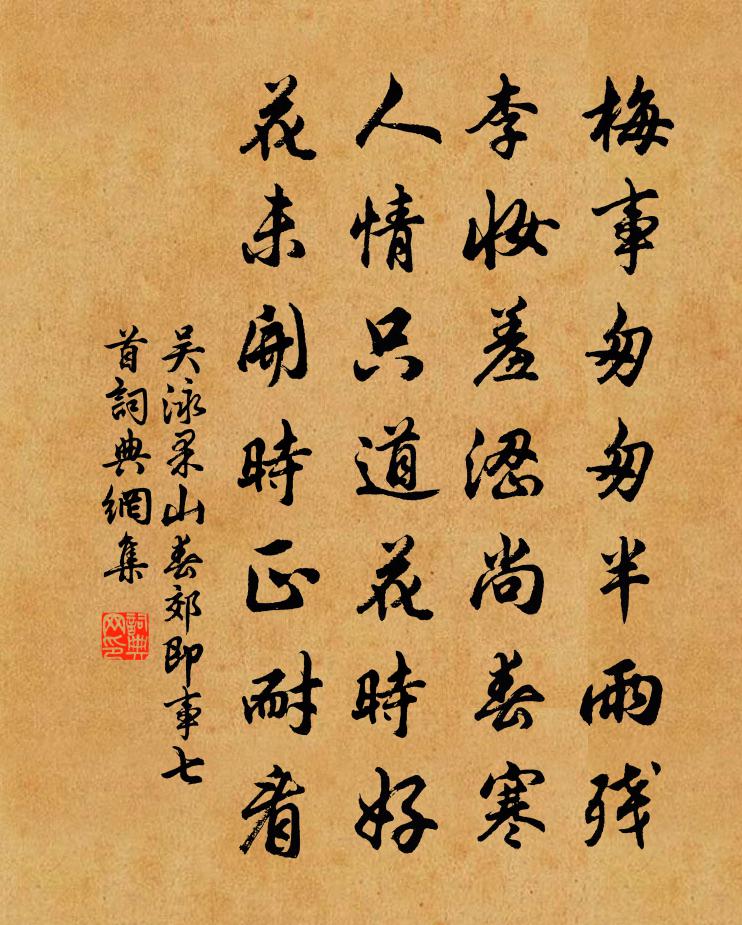 梅事匆匆半雨残
李妝羞澀尚春寒
人情只道花時好
花未開時正耐看
吴泳果山春郊即事七
首詞典網集
詞典网印